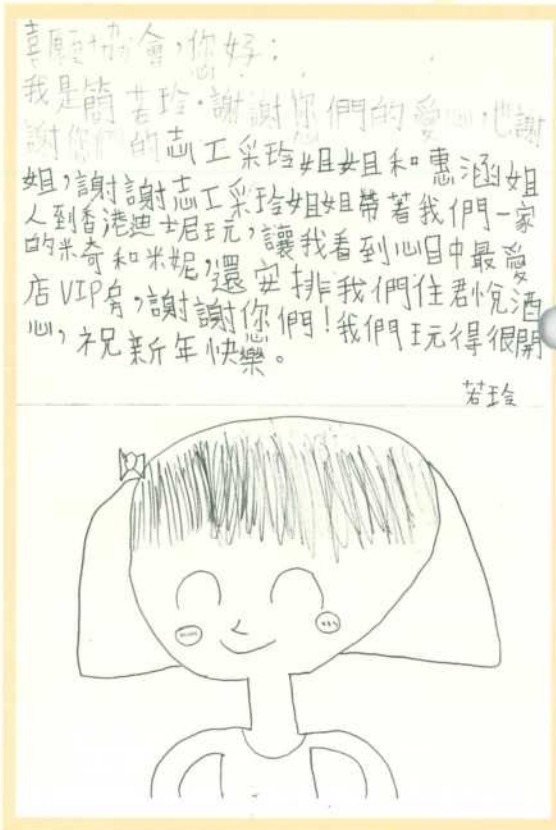 喜願協會，您好：
我是簡若玲．謝謝您們的愛心，也謝
謝您們的志工采玲姐姐和惠涵姐
姐，謝謝志工采玲姐姐帶著我們一家
人到香港迪士尼玩，讓我看到心目中最愛
的米奇和米妮，還安排我們住君悅酒
店VIP房，謝謝您們！我們玩得很開
心，祝新年快樂。
若玲